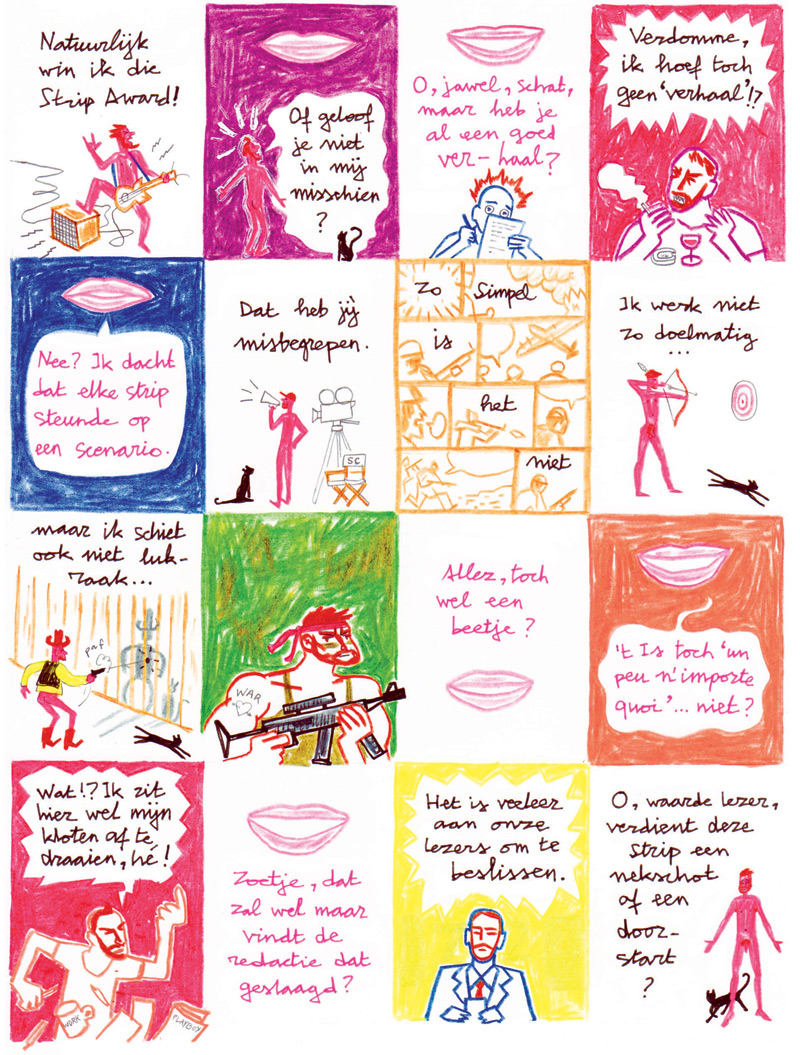 Natuurlijk
win ik die
Strip Award!
Of geloof
je niet
in mij
misschien
?
O, jawel, schat,
maar heb je
al een goed
ver-haal?
Verdomme,
ik hoef toch
geen 'verhaal'!?
Nee? Ik dacht
dat elke strip
steunde op
een scenario.
Dat heb jij
misbegrepen.
SC
Zo
simpel
is
het
niet
Ik werk niet
zo doelmatig
...
maar ik schiet
ook niet luk-
raak...
paf
WAR
Allez, toch
wel een
beetje?
't Is toch 'un
peu n'importe
quoi'... niet?
Wat!? Ik zit
hier wel mijn
kloten af te
draaien, hé!
WORK
PLAYBOY
Zoetje, dat
zal wel maar
vindt de
redactie dat
geslaagd?
Het is veeleer
aan onze
lezers om te
beslissen.
O, waarde lezer,
verdient deze
strip een
nekschot
of een
door-
start
?